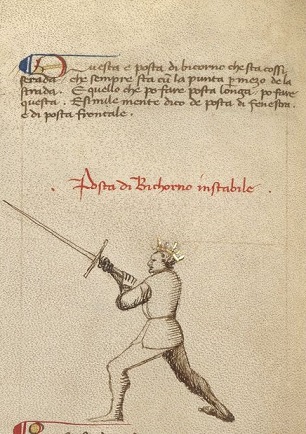 Questa e posta di bicorno che sta cossi
serada che sempre sta cū la punta p mezo de la
strada. E quello che po fare posta longa. po fare
questa. E simile mente dico de posta di fenestra.
e di posta frontale.
. Posta di Bichorno instabile .